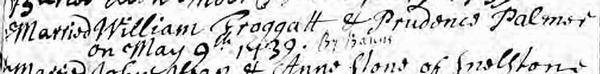 Married William Froggatt & Prudence Palmer
on May 9th 1739. By Banns
Married John & Anne Stone of Snelstone